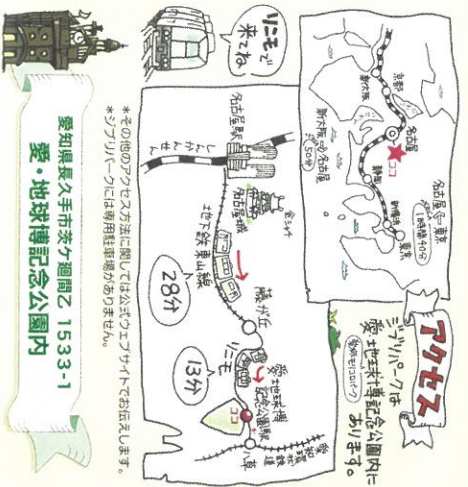 アクセス
ジブリパークは
愛・地球博記念公園内に
愛称モリコロパーク
あります。
京都
新大阪
名古屋
ココ
静岡
新横浜
東京
名古屋⇔東京
1時間40分
新大阪⇔名古屋
50分
リニモで
来てね
名古屋駅
しんかんせん
名古屋城
金シャチ
地下鉄東山線
28分
藤が丘
リニモ
13分
愛・地球博
記念公園駅
ココ
八草
愛知環状鉄道
*その他のアクセス方法に関しては公式ウェブサイトでお伝えします。
*ジブリパークには専用駐車場がありません。
愛知県長久手市茨ケ廻間乙 1533-1
愛・地球博記念公園内